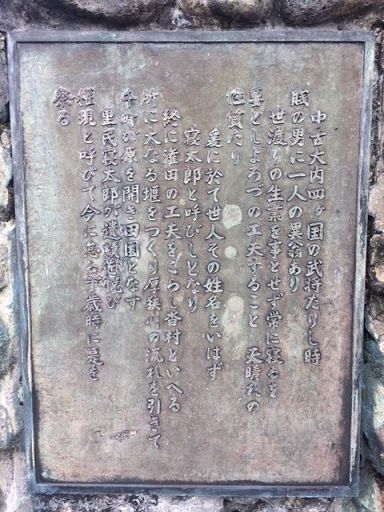 中古大内四ヶ国の武将たりし時
賎の男に一人の異翁あり
世渡りの生業を事とせず常に寝るを
要としよろづの工夫すること 天晴れの
性質たり
爰に於て世人その姓名をいはず
寝太郎と呼びしとなり
終に潅田の工夫をこらし沓村といへる
所に大なる堰をつくり厚狭川の流れを引きて
千町が原を開き田園となす
里民寝太郎が遺を悦び
権現と呼びて今に怠らず歳時に是を
祭る